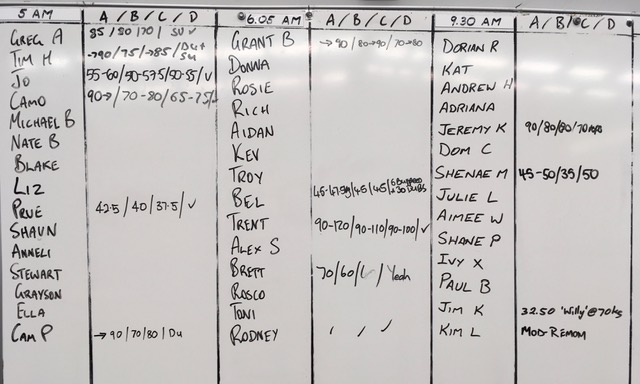 5 AM A/B/C/D 6.05 AM A/B/C/D 9.30 AM A/B/C/D
GREG A 85/80/70/ SU ✓ GRANT B →90/80→90/70→80 DORIAN R
TIM H →90/75/→85/DU+ SU DONNA KAT
JO 55-60/50-575/50-55/✓ ROSIE ANDREW H
CAMO 90→/70-80/65-75/ RICH ADRIANA
MICHAEL B AIDAN JEREMY K 90/80/80/70
NATE B KEV DOM C
BLAKE TROY SHENAE M 45-50/35/50
LIZ BEL 45-47.5/45/45/ JULIE L
PRUE 42.5/40/37.5/✓ TRENT 90-120/90-110/90-100/✓ AIMEE W
SHAUN ALEX S SHANE P
ANNELI BRETT 70/60/ / Yeah IVY X
STEWART ROSCO PAUL B
GRAYSON TONI JIM K 32.50 'Willy'@70kg
ELLA RODNEY / / / KIM L MOD-REMOM
CAM P →90/70/80/DU